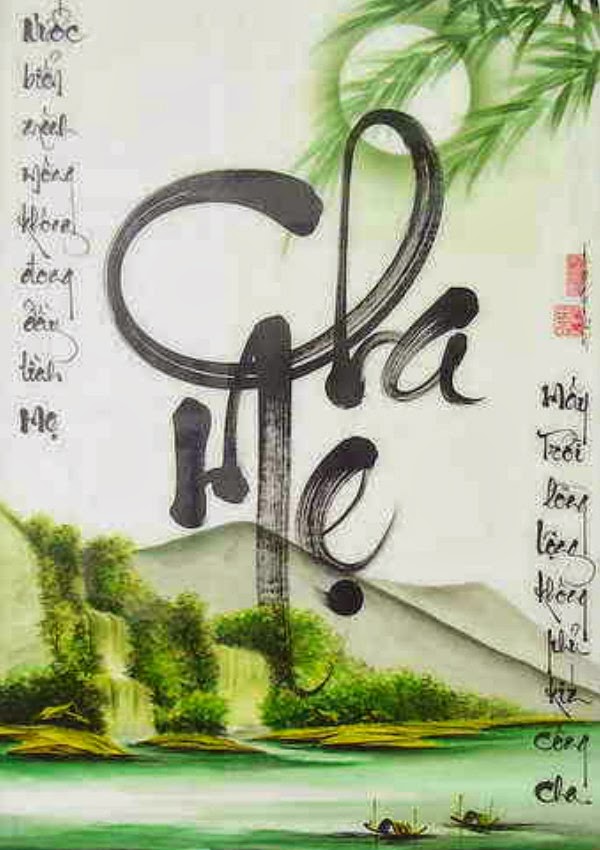 Cha
Mẹ
Nước
biển
mênh
mông
không
đong
đầy
tình
Mẹ
Mây
Trời
lồng
lộng
không
phủ
kín
công
Cha